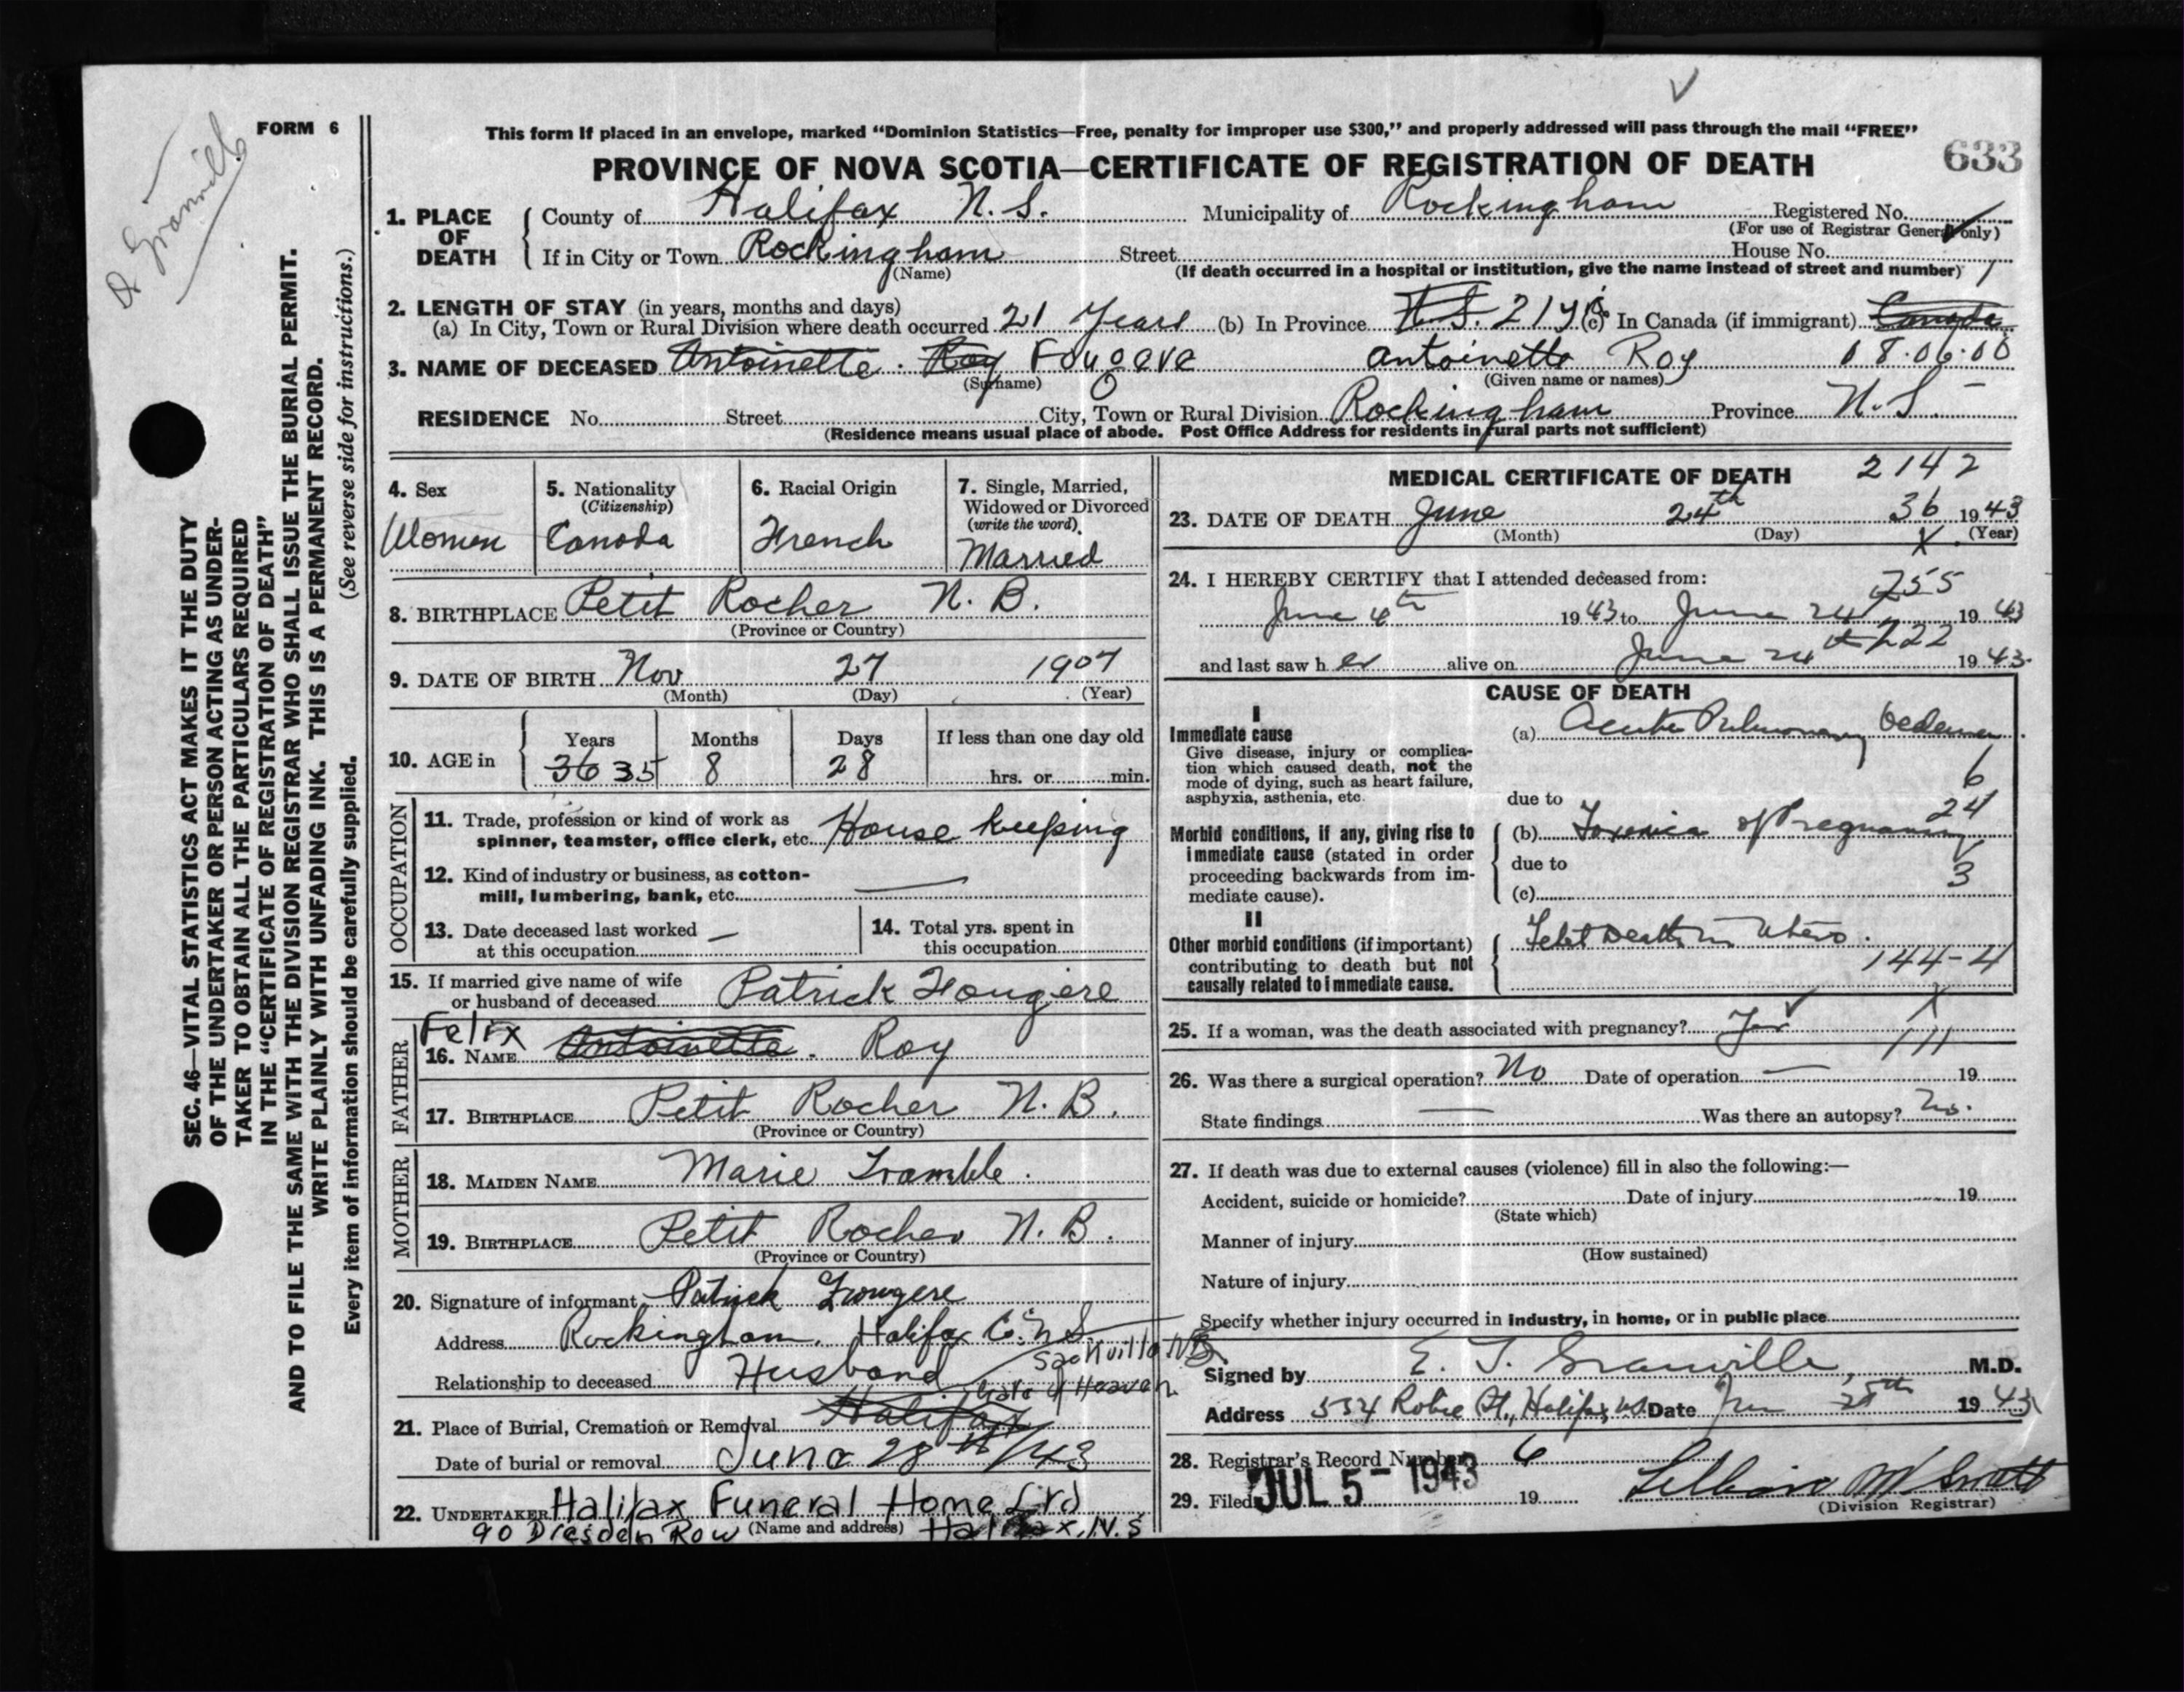 Dr Granville
FORM 6
This form if placed in an envelope, marked “Dominion Statistics—Free, penalty for improper use $300,” and properly addressed will pass through the mail “FREE”
PROVINCE OF NOVA SCOTIA—CERTIFICATE OF REGISTRATION OF DEATH 633
SEC. 46—VITAL STATISTICS ACT MAKES IT THE DUTY
OF THE UNDERTAKER OR PERSON ACTING AS UNDER-
TAKER TO OBTAIN ALL THE PARTICULARS REQUIRED
IN THE “CERTIFICATE OF REGISTRATION OF DEATH”
AND TO FILE THE SAME WITH THE DIVISION REGISTRAR WHO SHALL ISSUE THE BURIAL PERMIT.
WRITE PLAINLY WITH UNFADING INK. THIS IS A PERMANENT RECORD.
Every item of information should be carefully supplied. (See reverse side for instructions.)
1. PLACE OF DEATH County of Halifax N.S. Municipality of Rockingham Registered No.
(For use of Registrar General only)
If in City or Town Rockingham Street House No.
(Name) (If death occurred in a hospital or institution, give the name instead of street and number) 1
2. LENGTH OF STAY (in years, months and days)
(a) In City, Town or Rural Division where death occurred 21 Years (b) In Province N.S. 21 yrs (c) In Canada (if immigrant) Canada
3. NAME OF DECEASED Antoinette Roy Fougere Antoinette Roy 18.06.00
(Surname) (Given name or names)
RESIDENCE No. Street City, Town or Rural Division Rockingham Province N.S.
(Residence means usual place of abode. Post Office Address for residents in rural parts not sufficient)
4. Sex 5. Nationality 6. Racial Origin 7. Single, Married,
(Citizenship) Widowed or Divorced
(write the word)
Women Canada French Married
8. BIRTHPLACE Petit Rocher N.B.
(Province or Country)
9. DATE OF BIRTH Nov 27 1907
(Month) (Day) (Year)
10. AGE in Years Months Days If less than one day old
36 35 8 28 hrs. or min.
OCCUPATION
11. Trade, profession or kind of work as
spinner, teamster, office clerk, etc. House Keeping
12. Kind of industry or business, as cotton-
mill, lumbering, bank, etc. —
13. Date deceased last worked
at this occupation —
14. Total yrs. spent in
this occupation
15. If married give name of wife
or husband of deceased Patrick Fougere
FATHER
Felix
16. NAME Antoinette. Roy
17. BIRTHPLACE Petit Rocher N.B.
(Province or Country)
MOTHER
18. MAIDEN NAME Marie Tramble.
19. BIRTHPLACE Petit Rocher N.B.
(Province or Country)
20. Signature of informant Patrick Fougere
Address Rockingham, Halifax Co. N.S.
Sackville N.S.
Relationship to deceased Husband
Gate of Heaven
21. Place of Burial, Cremation or Removal Halifax
Date of burial or removal June 28th/43
22. UNDERTAKER Halifax Funeral Home Ltd
90 Dresden Row (Name and address) Halifax, N.S
MEDICAL CERTIFICATE OF DEATH 2142
23. DATE OF DEATH June 24th 36 1943
(Month) (Day) (Year)
X
24. I HEREBY CERTIFY that I attended deceased from:
755
June 4th 1943 to June 24 1943
222
and last saw her alive on June 24th 1943.
CAUSE OF DEATH
I
Immediate cause
Give disease, injury or complica-
tion which caused death, not the
mode of dying, such as heart failure,
asphyxia, asthenia, etc.
(a) Acute Pulmonary Oedema
6
due to
24
Morbid conditions, if any, giving rise to
immediate cause (stated in order
proceeding backwards from im-
mediate cause).
(b) Toxemia of Pregnancy
due to
3
(c)
II
Other morbid conditions (if important)
contributing to death but not
causally related to immediate cause.
Fetal Death in Utero.
144-4
X
25. If a woman, was the death associated with pregnancy? Yes
111
26. Was there a surgical operation? No Date of operation — 19
State findings — Was there an autopsy? No.
27. If death was due to external causes (violence) fill in also the following:—
Accident, suicide or homicide? Date of injury 19
(State which)
Manner of injury
(How sustained)
Nature of injury
Specify whether injury occurred in industry, in home, or in public place
Signed by E. T. Granville, M.D.
Address 554 Robie St., Halifax, N.S. Date June 25th 1943
28. Registrar's Record Number 6
29. Filed JUL 5 - 1943 19
(Division Registrar)